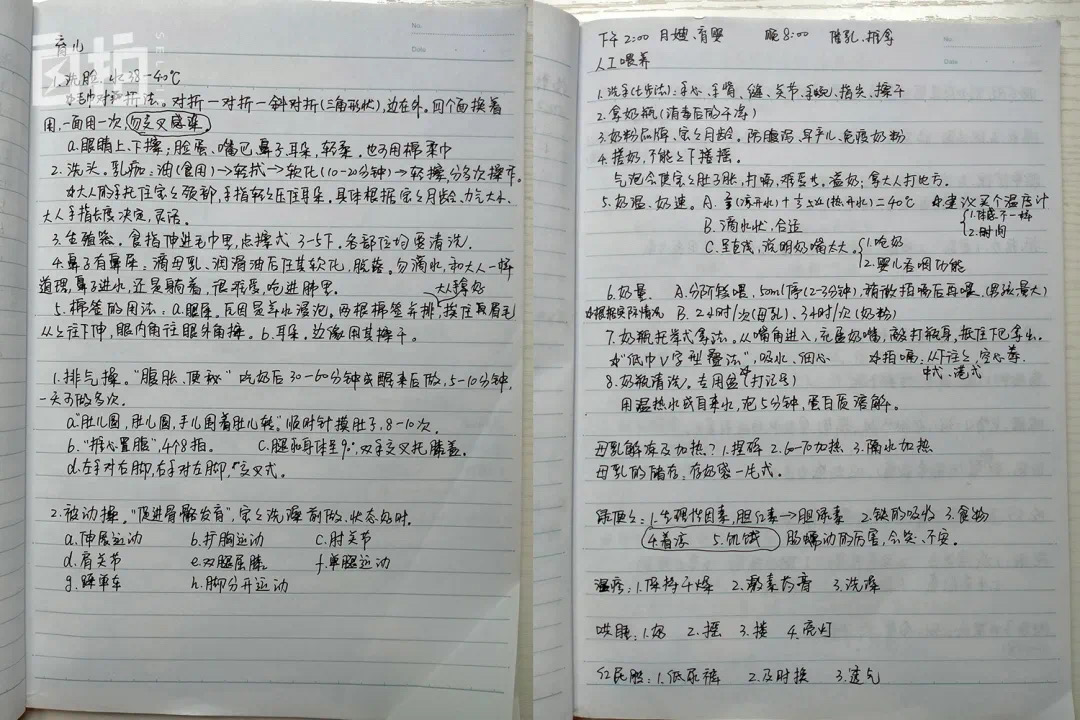 育儿
1.洗脸.水38-40℃
☆毛巾对叠折法。对折一对折一斜对折(三角形状),边在外。四个面换着
用,一面用一次,勿交叉感染
a.眼睛上、下擦;脸蛋、嘴巴、鼻子、耳朵,轻柔,也可用棉柔巾
2.洗头。乳痂:油(食用)→轻拭→软化(10-20分钟)→轻擦,分多次操作。
☆大人的手托住宝宝颈部,手指轻轻压住耳朵。具体根据宝宝月龄、力气大小、
大人手指长度决定,灵活。
3.生殖器。食指伸进毛巾里,点擦式 3-5下。各部位均要清洗.
4.鼻子有鼻屎:滴母乳、润滑油后任其软化,脱落。勿滴水,和大人一样
道理,鼻子进水,还是躺着,很难受,呛进肺里.
大人擦好
5.棉签的用法:a.眼屎。反因是羊水浸泡。两根棉签并排,挨住鼻眉毛
从上往下伸,眼内角往眼外角擦。b.耳朵。边缘用其擦干。
1.排气操。"腹胀、便秘"吃奶后30-60分钟或醒来后做,5-10分钟,
一天可做多次.
a."肚儿圆,肚儿圆,手儿围着肚儿转"顺时针摸肚子,8-10次.
b."推心置腹",4个8拍.
c.腿和身体呈90°,双手交叉托膝盖.
d.左手对右脚,右手对左脚,"交叉式。
2.被动操。"促进骨骼发育",宝宝洗澡前做、状态好时.
a.伸展运动 b.扩胸运动 c.肘关节
d.肩关节 e.双腿屈膝 f.单腿运动
g.蹬单车 h.脚分开运动
下午2:00 月嫂、育婴 晚8:00 催乳、推拿
人工喂养
1.洗手(七步法):手心、手背、缝、关节、手腕、指尖、擦干
2.拿奶瓶(消毒后的干净)
3.奶粉品牌、宝宝月龄。防腹泻、早产儿、免疫奶粉
4.摇奶,不能上下摇摇。
气泡会使宝宝肚子胀,打嗝,难受,溢奶;拿大人打比方.
5.奶温、奶速。A.(凉开水)+(热开水)=40℃ ☆建议买个温度计
1.体感不一样
2.时间
B.滴水状,合适
C.呈直线,说明奶嘴太大。
1.呛奶
2.婴儿吞咽功能
6.奶量. A.分阶段喂,50ml停(2-3分钟),稍微拍嗝后再喂.(男孩量大)
☆根据实际情况 B.2小时/次(母乳)、3小时/次(奶粉)
7.奶瓶托举式拿法。从嘴角进入,充盈奶嘴,敲打瓶身,抵住下巴拿出。
☆"低巾V字型叠法",吸水、细心
☆拍嗝:从下往上,空心拳.
中式、港式
8.奶瓶清洗。专用盆☆(打记号)
用温热水或自来水,泡5分钟,蛋白质溶解。
母乳解冻及加热?1.捏碎 2.60-70加热 3.隔水加热
母乳的储存:存奶袋一片式.
绿便宝:1.生理性因素,胆红素→胆绿素 2.铁的吸收 3.食物
4.着凉 5.饥饿 肠蠕动的厉害,会哭、不安.
湿疹:1.保持干燥 2.激素药膏 3.洗澡
哄睡:1.奶 2.摇 3.搂 4.亮灯
红屁股:1.低尿裤 2.及时换 3.透气